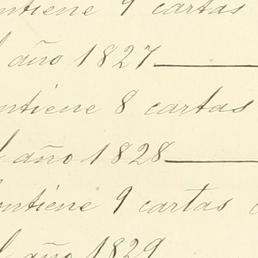 ntiene 9 cartas
l año 1827
ntiene 8 cartas
l año 1828
ontiene 9 cartas
l año 1829